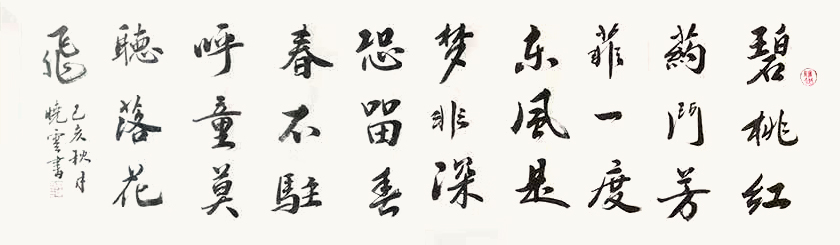 碧桃紅
葯鬥芳
菲一度
东風是
梦非深
恐留春
春不駐
呼童莫
聽落花
飛
己亥秋月
曉雲書